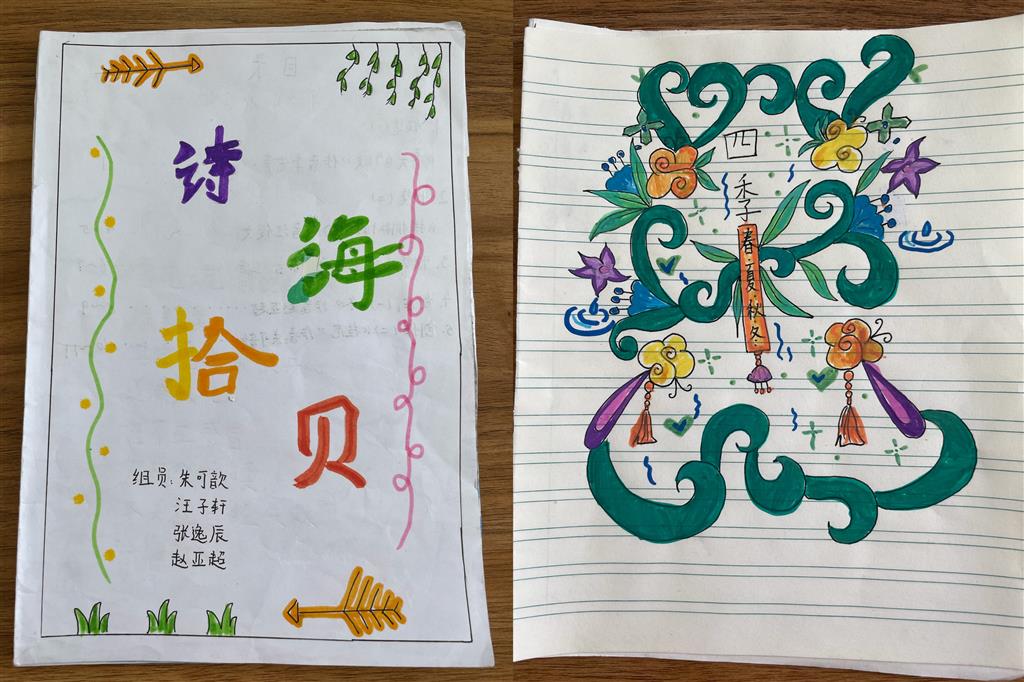 诗
海
拾
贝
组员:朱可歆
汪子轩
张逸辰
赵亚超
四
季
春·夏·秋·冬